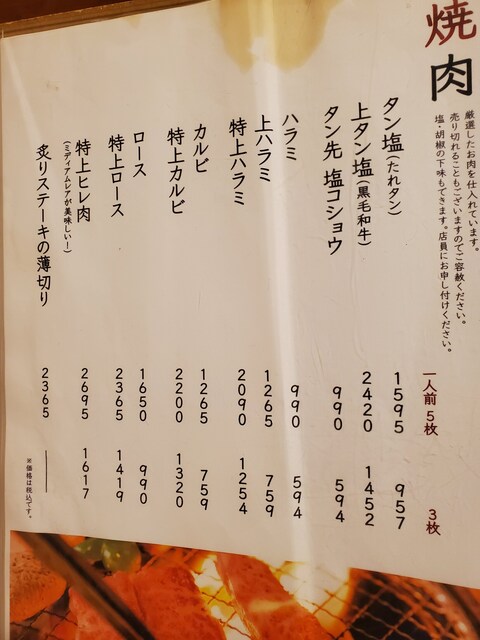 焼肉
厳選したお肉を仕入れています。
売り切れることもございますのでご容赦ください。
塩・胡椒の下味もできます。店員にお申し付けください。
一人前 5枚 3枚
タン塩(たれタン) 1595 957
上タン塩(黒毛和牛) 2420 1452
タン先 塩コショウ 990 594
ハラミ 990 594
上ハラミ 1265 759
特上ハラミ 2090 1254
カルビ 1265 759
特上カルビ 2200 1320
ロース 1650 990
特上ロース 2365 1419
特上ヒレ肉 2695 1617
(ミディアムレアが美味しいー)
炙りステーキの薄切り 2365 ——
※価格は税込です。